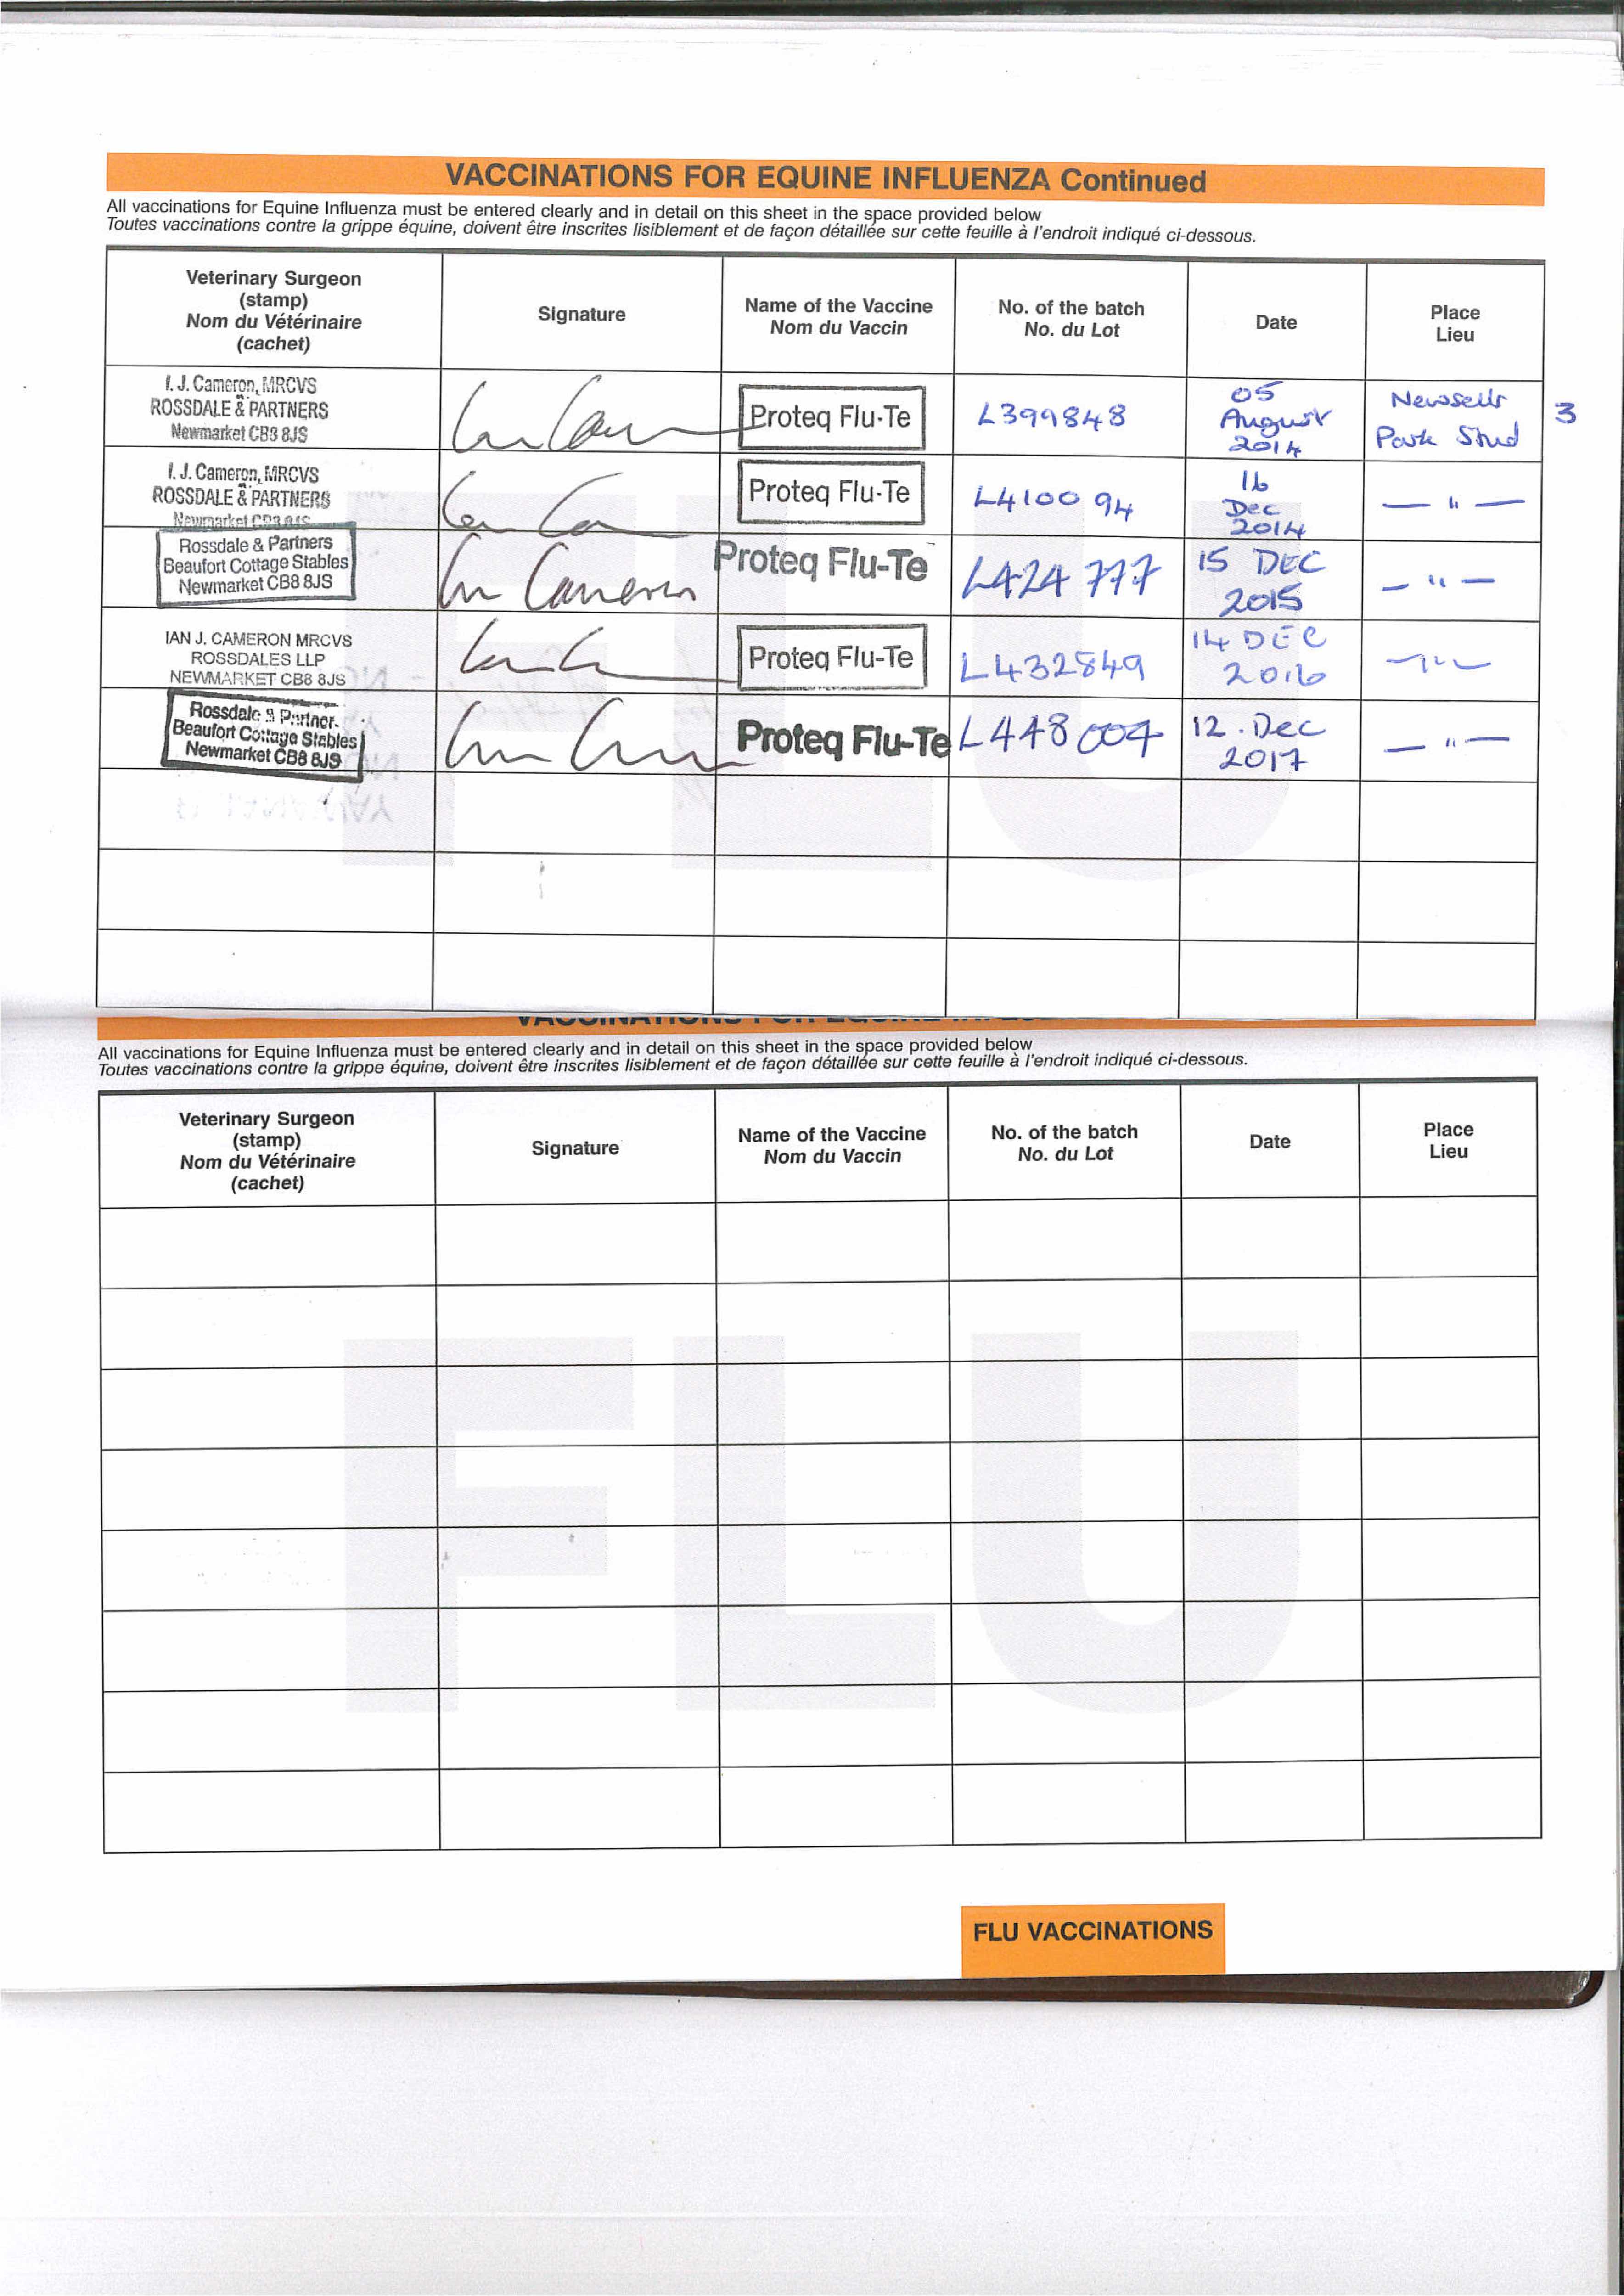 VACCINATIONS FOR EQUINE INFLUENZA Continued
All vaccinations for Equine Influenza must be entered clearly and in detail on this sheet in the space provided below
Toutes vaccinations contre la grippe équine, doivent être inscrites lisiblement et de façon détaillée sur cette feuille à l'endroit indiqué ci-dessous.
Veterinary Surgeon
(stamp)
Nom du Vétérinaire
(cachet)
Signature
Name of the Vaccine
Nom du Vaccin
No. of the batch
No. du Lot
Date
Place
Lieu
I. J. Cameron, MRCVS
ROSSDALE & PARTNERS
Newmarket CB8 8JS
Proteq Flu-Te
L399848
05
August
2014
Newsells
Park Stud
3
I. J. Cameron, MRCVS
ROSSDALE & PARTNERS
Newmarket CB8 8JS
Proteq Flu-Te
L410094
16
Dec
2014
— " —
Rossdale & Partners
Beaufort Cottage Stables
Newmarket CB8 8JS
Ian Cameron
Proteq Flu-Te
L424777
15 DEC
2015
— " —
IAN J. CAMERON MRCVS
ROSSDALES LLP
NEWMARKET CB8 8JS
Proteq Flu-Te
L432849
14 DEC
2016
— " —
Rossdale & Partner
Beaufort Cottage Stables
Newmarket CB8 8JS
Proteq Flu-Te
L448004
12. Dec
2017
— " —
FLU
All vaccinations for Equine Influenza must be entered clearly and in detail on this sheet in the space provided below
Toutes vaccinations contre la grippe équine, doivent être inscrites lisiblement et de façon détaillée sur cette feuille à l'endroit indiqué ci-dessous.
Veterinary Surgeon
(stamp)
Nom du Vétérinaire
(cachet)
Signature
Name of the Vaccine
Nom du Vaccin
No. of the batch
No. du Lot
Date
Place
Lieu
FLU
FLU VACCINATIONS